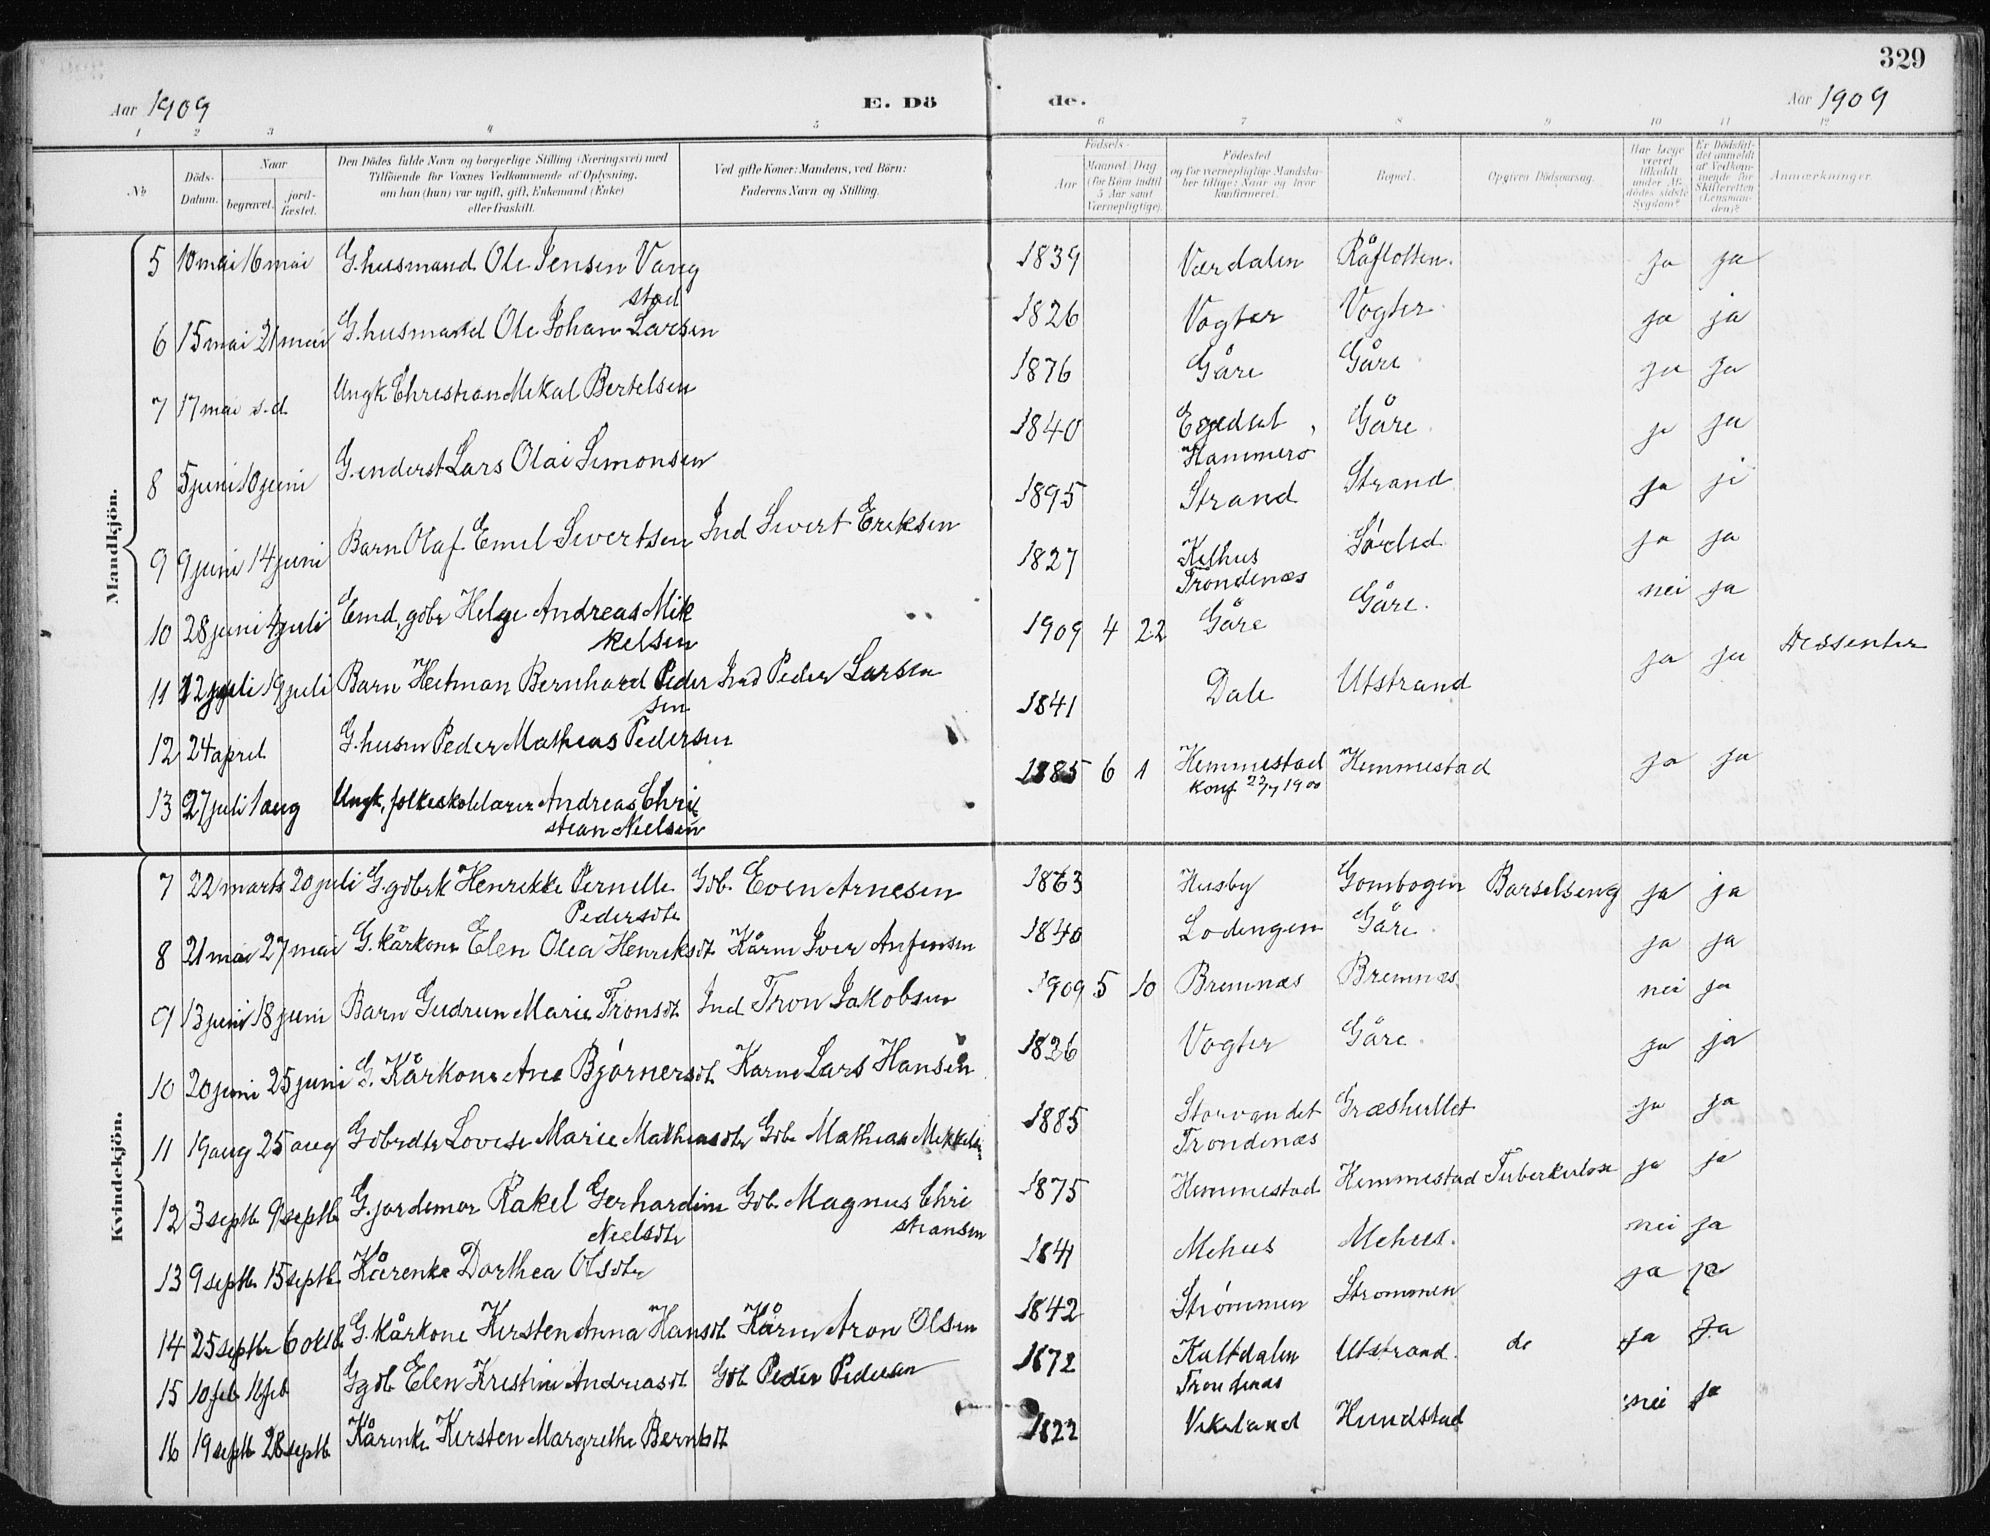 329
Aar 1909
E. Dö
de.
Aar 1909
1 2 3 4 5 6 7 8 9 10 11 12
№
Döds-Datum.
Naar
begravet.
jord-fæstet.
Den Dödes fulde Navn og borgerlige Stilling (Næringsvei) med
Tilföiende for Voxnes Vedkommende af Oplysning,
om han (hun) var ugift, gift, Enkemand (Enke)
eller fraskilt.
Ved gifte Koner: Mandens, ved Börn:
Faderens Navn og Stilling.
Födsels-
Aar
Maaned Dag
(for Börn indtil
5 Aar samt
Værnepligtige).
Födested
og for værnepligtige Mandska-
ber tillige: Naar og hvor
konfirmeret.
Bopæl.
Opgiven Dödsaarsag.
Har Læge
været
tilkaldt
under Af-
dödes sidste
Sygdom?
Er Dödsfal-
det anmeldt
af Vedkom-
mende for
Skifteretten
(Lensman-
den)?
Anmærkninger.
Mandkjön.
5 10 mai 16 mai G. husmand Ole Jensen Vang
stad 1839 Værdalen Råflotten. ja ja
6 15 mai 21 mai G. husmand Ole Johan Larsen 1826 Vogter Vogter. ja ja
7 17 mai s.d. Ungk Christian Mikal Bertelsen 1876 Gåre Gåre. ja ja
8 5 juni 10 juni G. inderst Lars Olai Simonsen 1840 Hammerø Gåre. ja ja
9 9 juni 14 juni Barn Olaf Emil Sivertsen Ind Sivert Eriksen 1895 Strand Strand ja ja
10 28 juni 4 juli Emd. gdbr Helge Andreas Mik
kelsen 1827 Kilhus
Trondenæs ja ja
11 12 juli 19 juli Barn Heitman Bernhard Peder
sen Ind Peder Larsen 1909 4 22 Gåre Gåre. nei ja
12 24 april G. husm Peder Mathias Pedersen 1841 Dale Utstrand ja ja Dissenter
13 27 juli 1 aug Ungk, folkeskolelærer Andreas Chri
stian Nielsen 1885 6 1 Hemmestad
konf 22/7 1900 Hemmestad ja ja
Kvindekjön.
7 22 marts 20 juli G. gdbrk Henrikke Pernille
Pedersdtr Gdb. Even Arnesen 1863 Husby Gombogen Barselseng ja ja
8 21 mai 27 mai G. kårkone Elen Olea Henriksdt Kårm Iver Anfinsen 1840 Lodingen Gåre. ja ja
9 13 juni 18 juni Barn Gudrun Marie Tronsdt Ind Tron Jakobsen 1909 5 10 Bremnæs Bremnæs nei ja
10 20 juni 25 juni G. Kårkone Ane Bjørnersdt. Karm Lars Hansen 1826 Vogter Gåre. ja ja
11 19 aug 25 aug Gdbrdtr Lovise Marie Mathiasdtr Gdb. Mathias Mikkelsen 1885 Storvandet
Trondenæs Græshullet ja ja
12 3 septb. 9 septb. G. jordemor Rakel Gerhardine
Nielsdtr Gdb. Magnus Chri
stiansen 1875 Hemmestad Hemmestad Tuberkulose ja ja
13 9 septb. 15 septb. Kårenke Dorthea Olsdtr 1841 Mehus Mehus. nei ja
14 25 septbr 6 oktb. G. kårkone Kirsten Anna Hansdt Kårm Aron Olsen 1842 Strømmen Strømmen ja ja
15 10 feb 16 feb Ggdb. Elen Kristine Andreasdt Gdb. Peder Pedersen 1872 Kaltdalen
Trondenæs Utstrand. do ja ja
16 19 septb 28 septb Kårenke Kirsten Margrethe Berntsdt 1822 Vikeland Hundstad nei ja